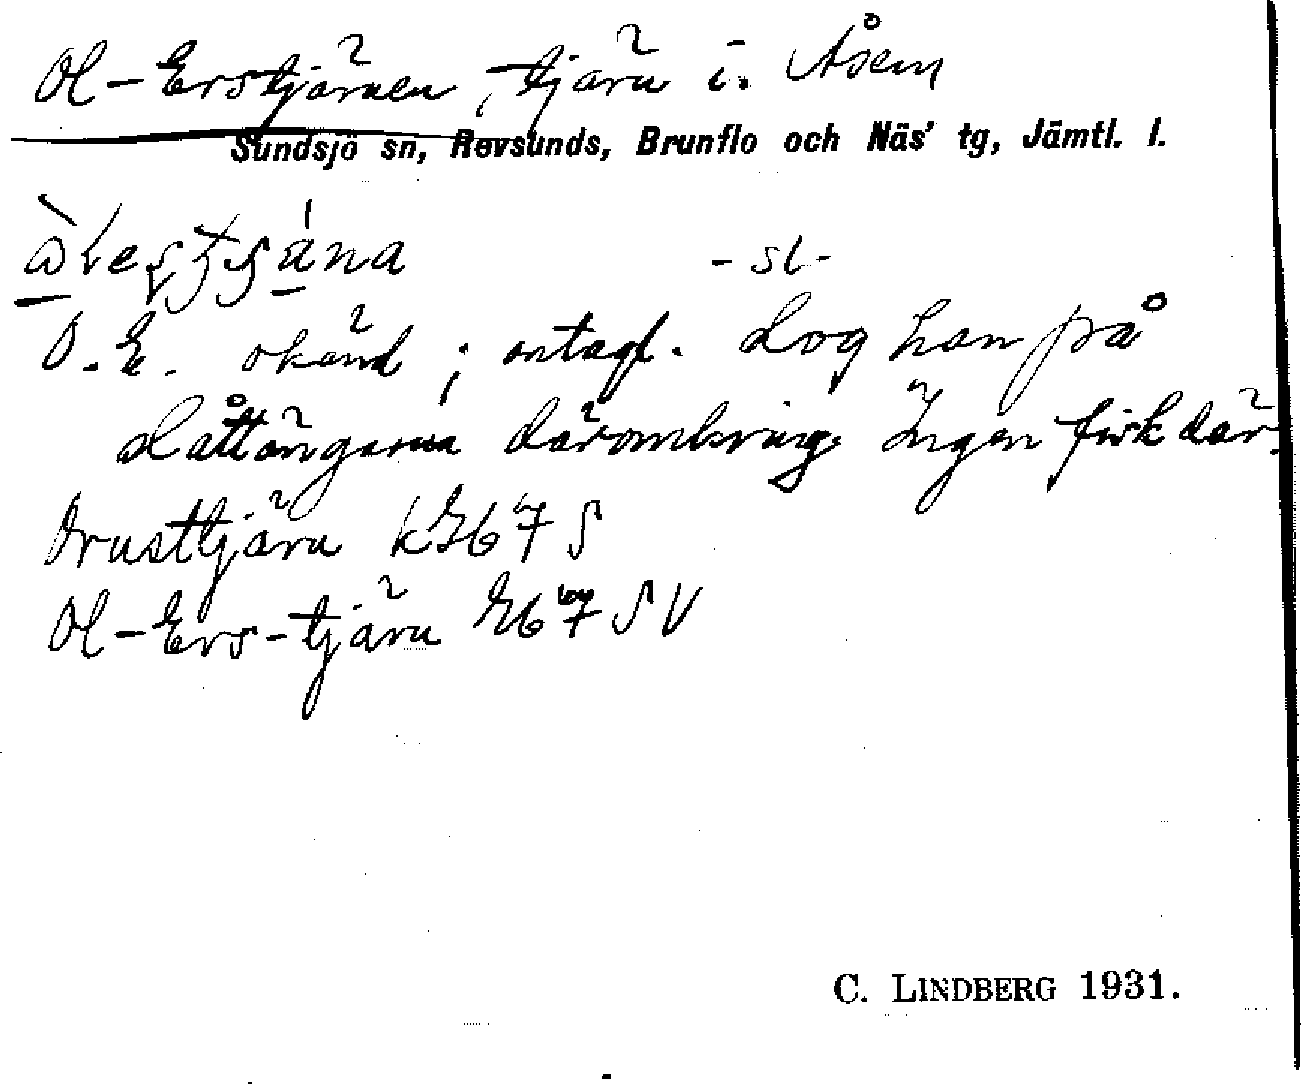 Ol-Erstjärnen, tjärn i. Åsem
Sundsjö sn, Revsunds, Brunflo och Näs' tg, Jämtl. l.
- sl -
O.E. okänd; antagl. dog han på
slåttängarna däromkring. Ingen fisk där.
Orusttjärn kEb7S
Ol-Ers-tjärn Eb7SV
C. LINDBERG 1931.